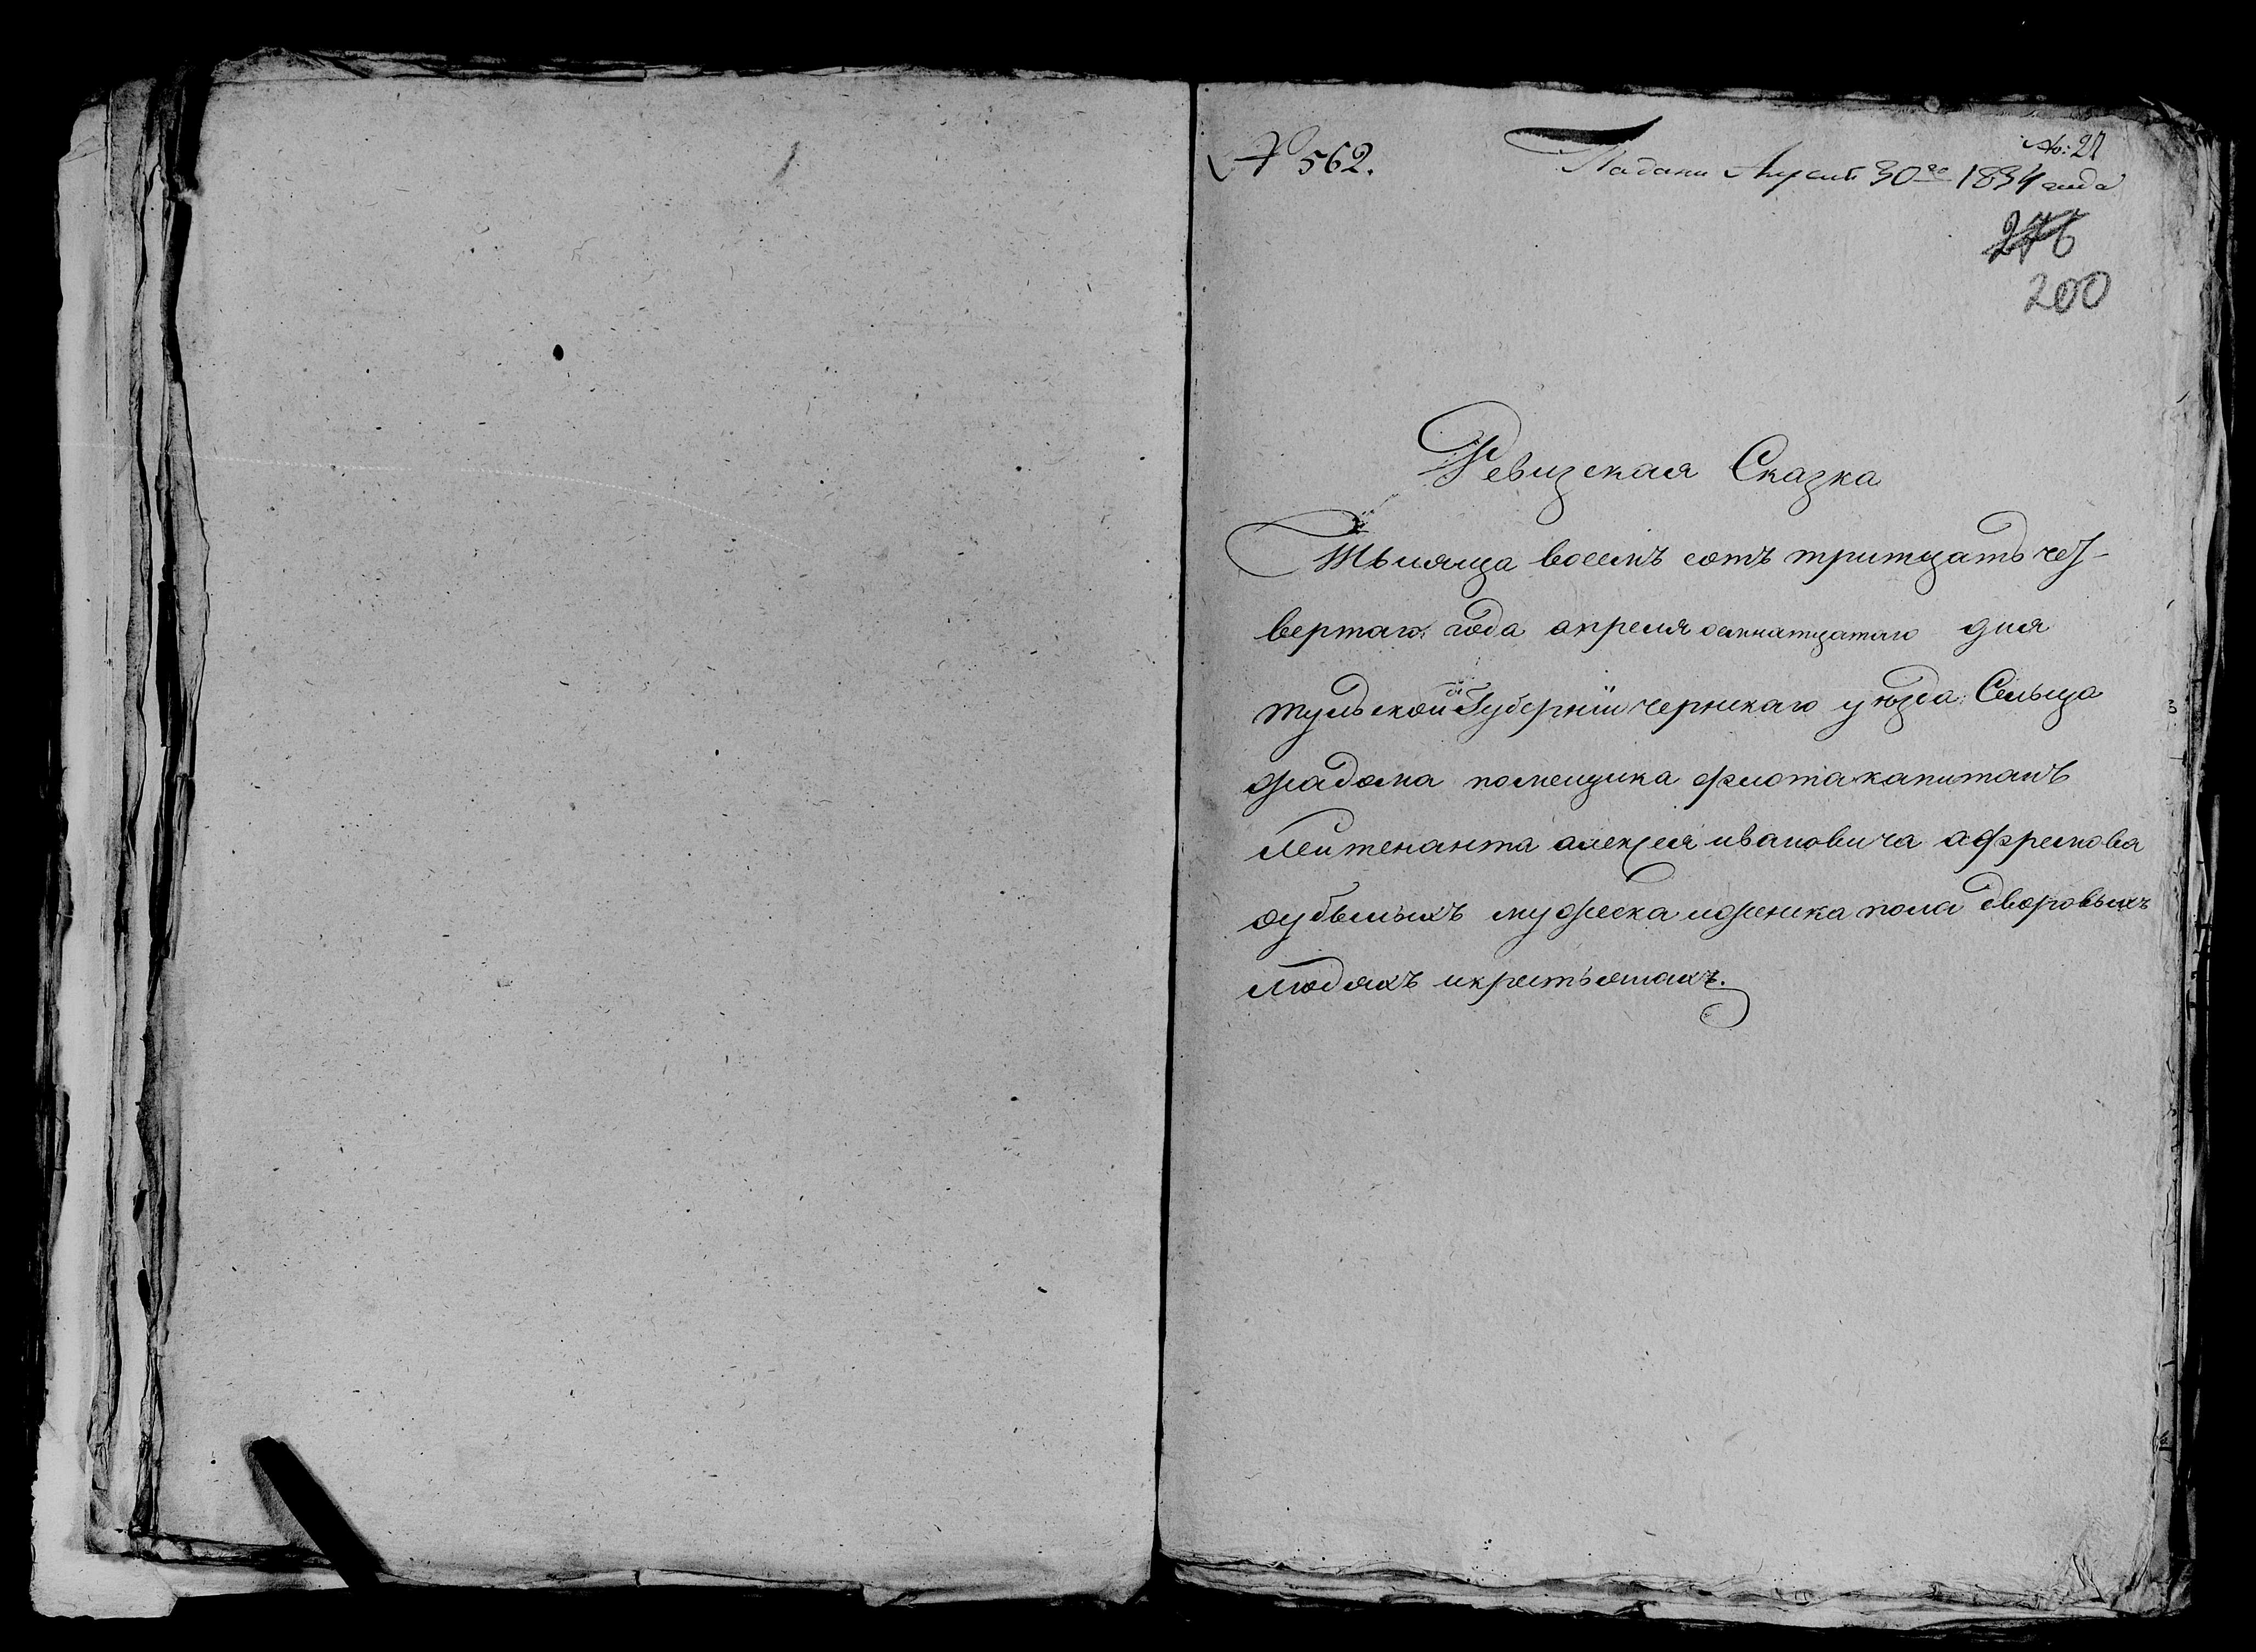 № 562.
№: 21
Подана Апреля 30го 1834 года
276
200
Ревизская Сказка
Тысяща восемъ сотъ тритцать чет-
вертаго года апреля семнатцатаго дня
тульской Губернiи чернскаго уѣзда Сельца
помещика флота капитанъ
лейтенанта алексея ивановича афремова
оубылыхъ мужеска иженска пола дворовыхъ
людяхъ икрестьянахъ.